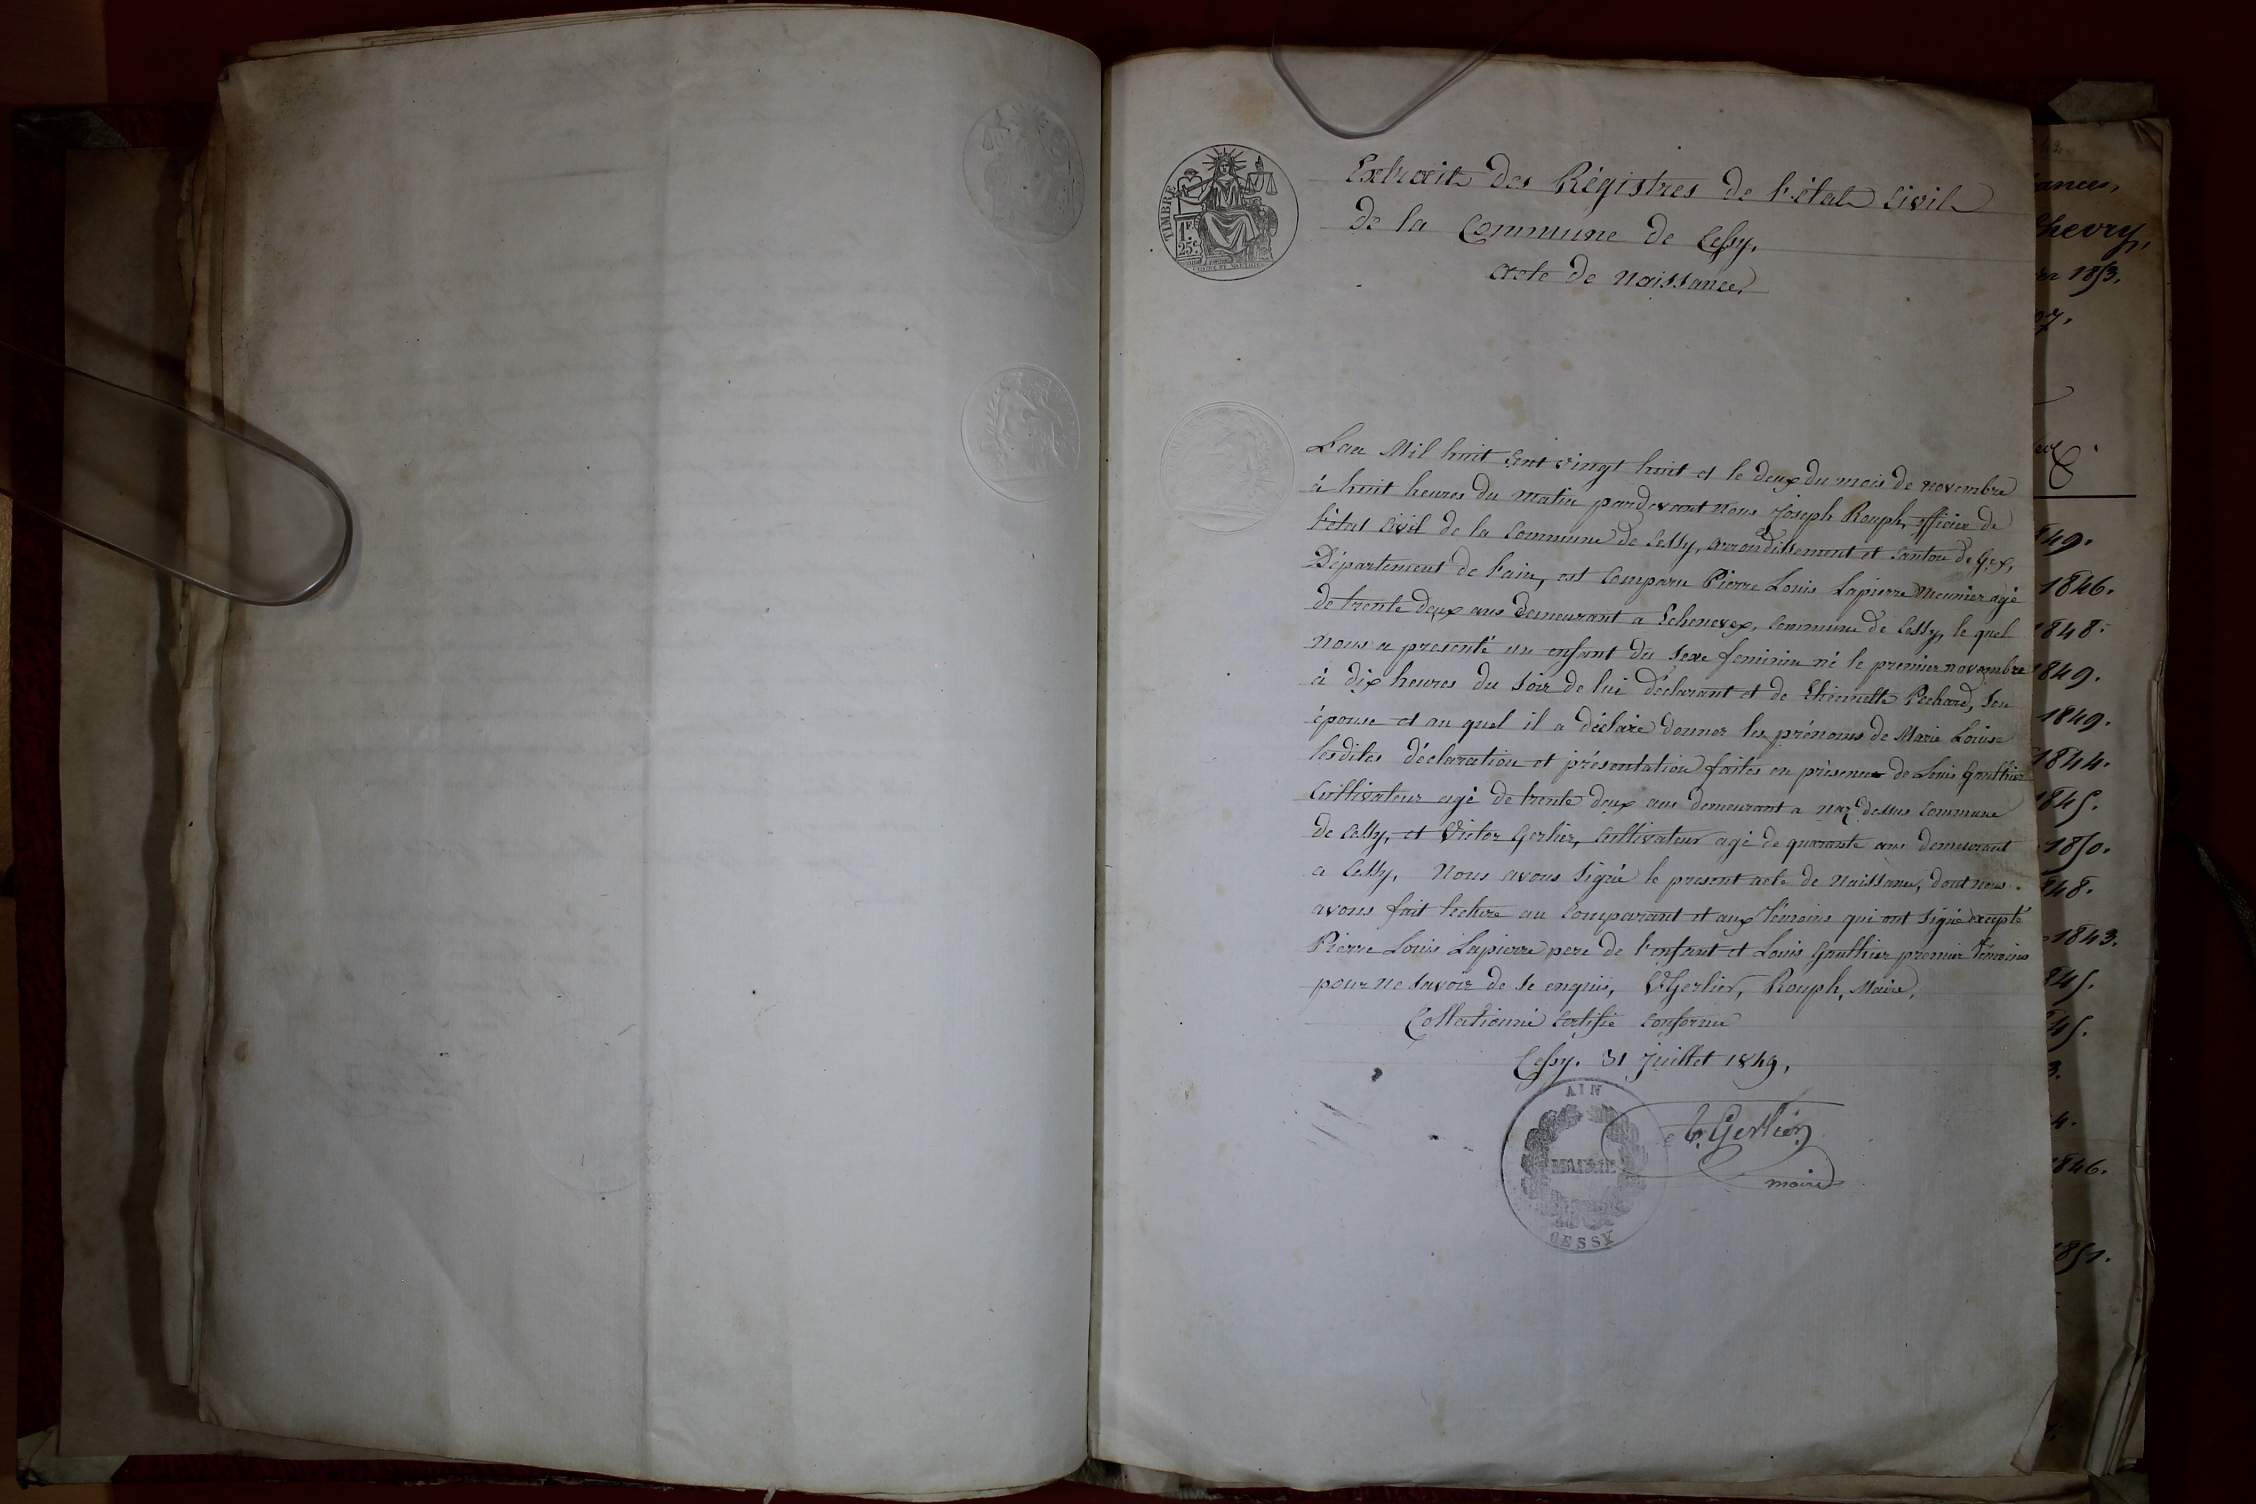 TIMBRE
1F.
25c.
Extrait des Régistres de l'état Civil
de la Commune de Cessy.
Acte de Naissance.
L'an Mil huit Cent vingt huit et le deux du mois de novembre
à huit heures du matin pardevant nous Joseph Rouph, officier de
l'état Civil de la Commune de Cessy, arrondissement et Canton de Gex,
Département de l'ain, est Comparu Pierre Louis Lapierre Meunier agé
de trente deux ans demeurant a Echenevex, Commune de Cessy, le quel
nous a presenté un enfant du Sexe feminin né le premier novembre
à dix heures du Soir de lui déclarant et de Thiennette Pechard, Son
épouse et au quel il a déclaré donner les prénoms de Marie Louise
lesdites déclaration et présentation faites en présence de Louis Gauthier
Cultivateur agé de trente deux ans demeurant a naz dessus Commune
de Cessy, et Victor Gerlier, Cultivateur agé de quarante ans demeurant
a Cessy, Nous avons Signé le present acte de Naissance, dont nous
avons fait lecture au Comparant et aux Témoins qui ont Signé excepté
Pierre Louis Lapierre pere de l'enfant et Louis Gauthier premier Témoins
pour ne Savoir de Se enquis, V Gerlier, Rouph, Maire,
Collationné Certifié Conforme
Cessy. 31 Juillet 1849.
AIN
MAIRIE
CESSY
V. Gerlier
maire
Chevry,
1853.
49.
1846.
1848.
1849.
1849.
1844.
1845.
1850.
48.
1843.
45.
45.
3.
4.
1846.
1851.